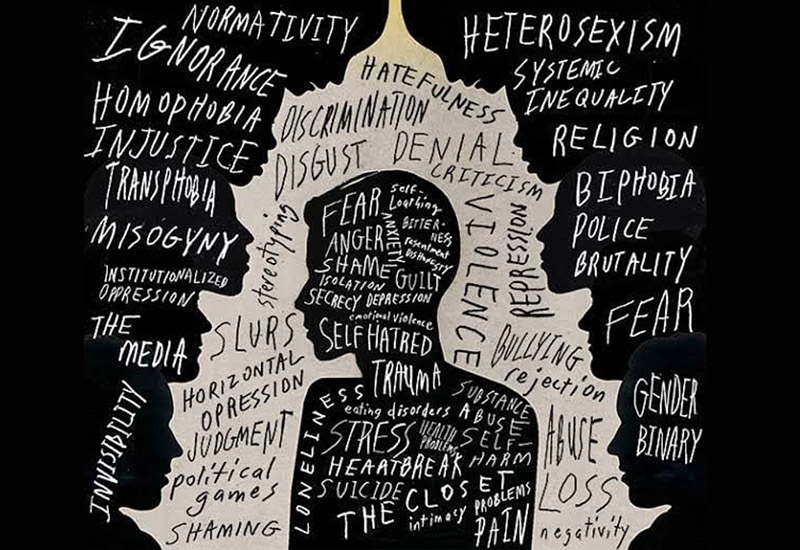 NORMATIVITY
IGNORANCE
HOMOPHOBIA
INJUSTICE
TRANSPHOBIA
MISOGYNY
INSTITUTIONALIZED
OPPRESSION
THE
MEDIA
INVISIBILITY
HETEROSEXISM
SYSTEMIC
INEQUALITY
RELIGION
BIPHOBIA
POLICE
BRUTALITY
FEAR
GENDER
BINARY
HATEFULNESS
DISCRIMINATION
DISGUST
DENIAL
CRITICISM
stereotyping
VIOLENCE
REPRESSION
SLURS
HORIZONTAL
OPRESSION
JUDGMENT
political
games
SHAMING
BULLYING
rejection
ABUSE
LOSS
negativity
FEAR
self-
Loathing
ANGER
ANXIETY
BITTER-
NESS
resentment
DISHONESTY
SHAME
GUILT
ISOLATION
SECRECY DEPRESSION
emotional violence
SELF HATRED
TRAUMA
LONELINESS
eating disorders
SUBSTANCE
ABUSE
STRESS
HEALTH
PROBLEMS
SELF-
HARM
HEARTBREAK
SUICIDE
THE CLOSET
intimacy
PROBLEMS
PAIN